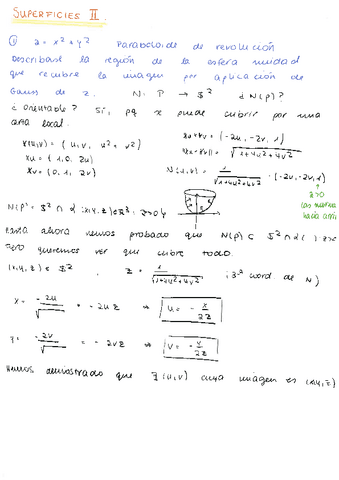 SUPERFICIES II
① z = x² + y² Paraboloide de revolución
Describase la región de la esfera unidad
que recubre la imagen por aplicación de
Gauss de z. N: P → S² ¿N(p)?
¿orientable? Sí, pq x puede cubrir por una
carta local.
x(u,v) = (u, v, u² + v²)
xu = (1, 0, 2u)
xv = (0, 1, 2v)
xu∧xv = (-2u, -2v, 1)
‖xu∧xv‖ = √1+4u²+4v²
N(u,v) = 1/√1+4u²+4v² · (-2u, -2v, 1)
z>0
hacia
N(P) = S² ∩ {(x,y,z) ∈ R³ : z>0}
Hasta ahora hemos probado que N(P) ⊂ S² ∩ { } z>0
Pero queremos ver que cubre todo.
(x,y,z) ∈ S², z = 1/√1+4u²+4v² ; 3ª coord. de N)
x = -2u/√ = -2uz ⇒ u = -x/2z
y = -2v/√ = -2vz ⇒ v = -y/2z
Hemos demostrado que ∃ (u,v) cuya imagen es (x,y,z)